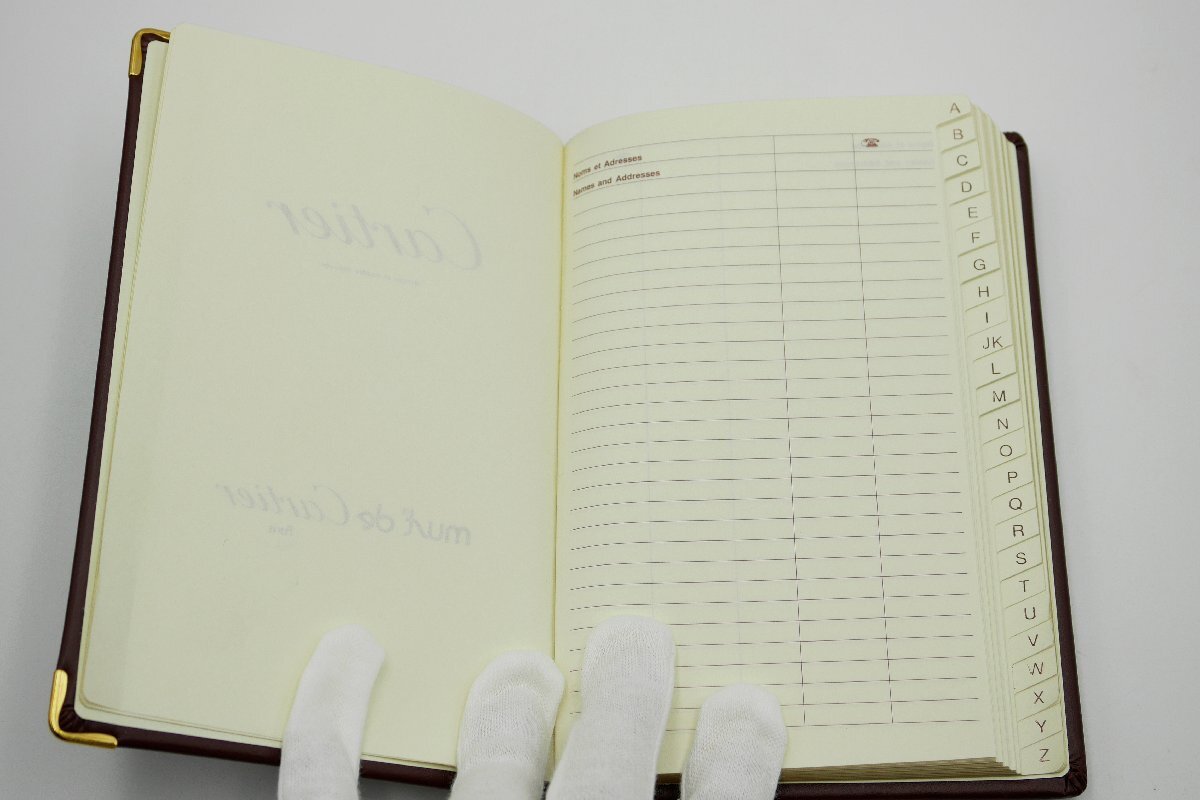 Cartier
must de Cartier
Paris
Noms et Adresses
Names and Addresses
A
B
C
D
E
F
G
H
I
JK
L
M
N
O
P
Q
R
S
T
U
V
W
X
Y
Z